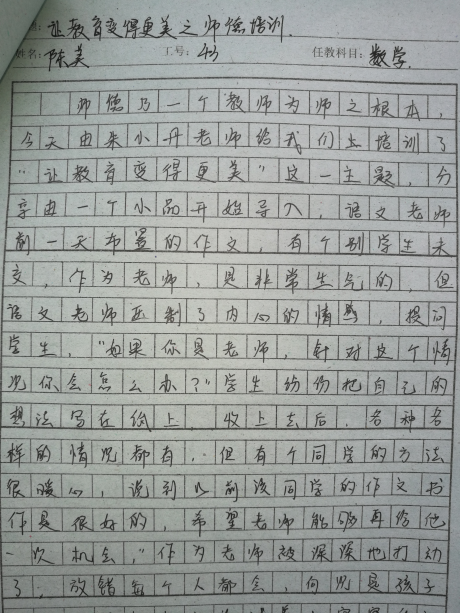 题：让教育变得更美之师德培训.
姓名：陈美 工号：43 任教科目：数学.
师德乃一个教师为师之根本，
今天由朱小丹老师给我们上培训了
“让教育变得更美”这一主题，分
享由一个小品开始导入，语文老师
前一天布置的作文，有个别学生未
交，作为老师，是非常生气的，但
语文老师压制了内心的情感，提问
学生，“如果你是老师，针对这个情
况你会怎么办？”学生纷纷把自己的
想法写在纸上，收上去后，各种各
样的情况都有，但有个同学的方法
很暖心，说到以前该同学的作文书
作是很好的，希望老师能够再给他
一次机会，”作为老师被深深地打动
了，放错每个人都会，何况是孩子